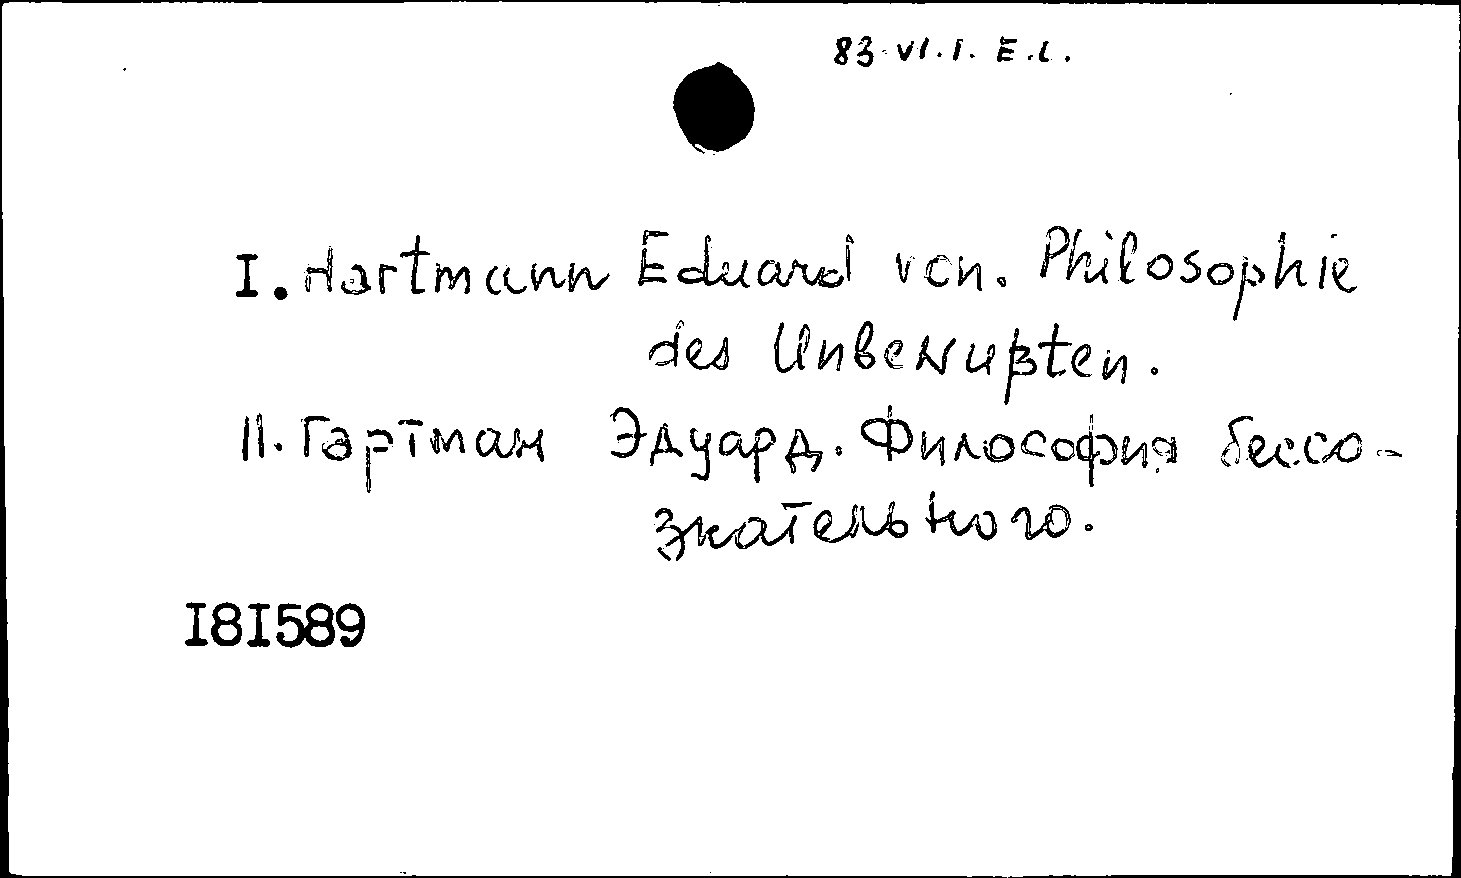 83 VI.I. E.L.
I. Hartmann Eduard von. Philosophie
des Unbewußten.
II. Гартман Эдуард. Философия бессо-
знательного.
I8I589